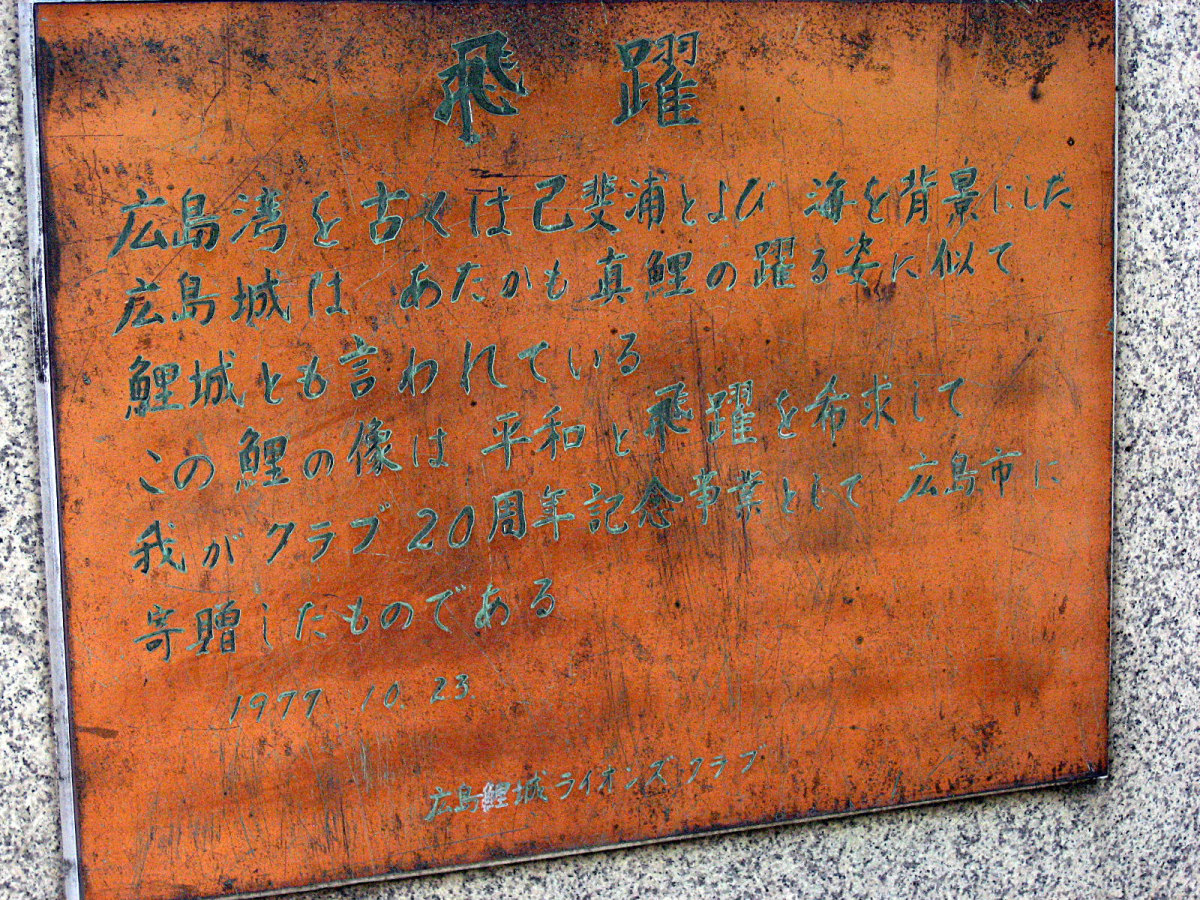 飛躍
広島湾を古くは己斐浦とよび 海を背景にした
広島城は あたかも真鯉の躍る姿に似て
鯉城とも言われている
この鯉の像は 平和と飛躍を希求して
我がクラブ20周年記念事業として 広島市に
寄贈したものである
1977. 10. 23.
広島鯉城ライオンズクラブ